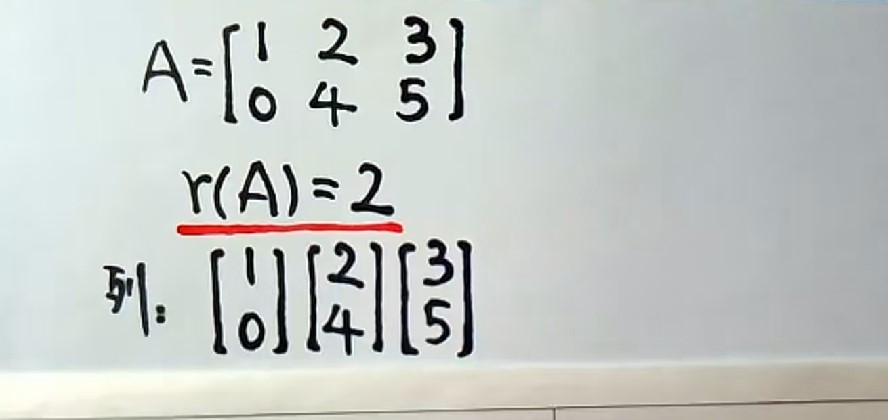 A=[1 2 3
0 4 5]
r(A)=2
列: [1 0] [2 4] [3 5]